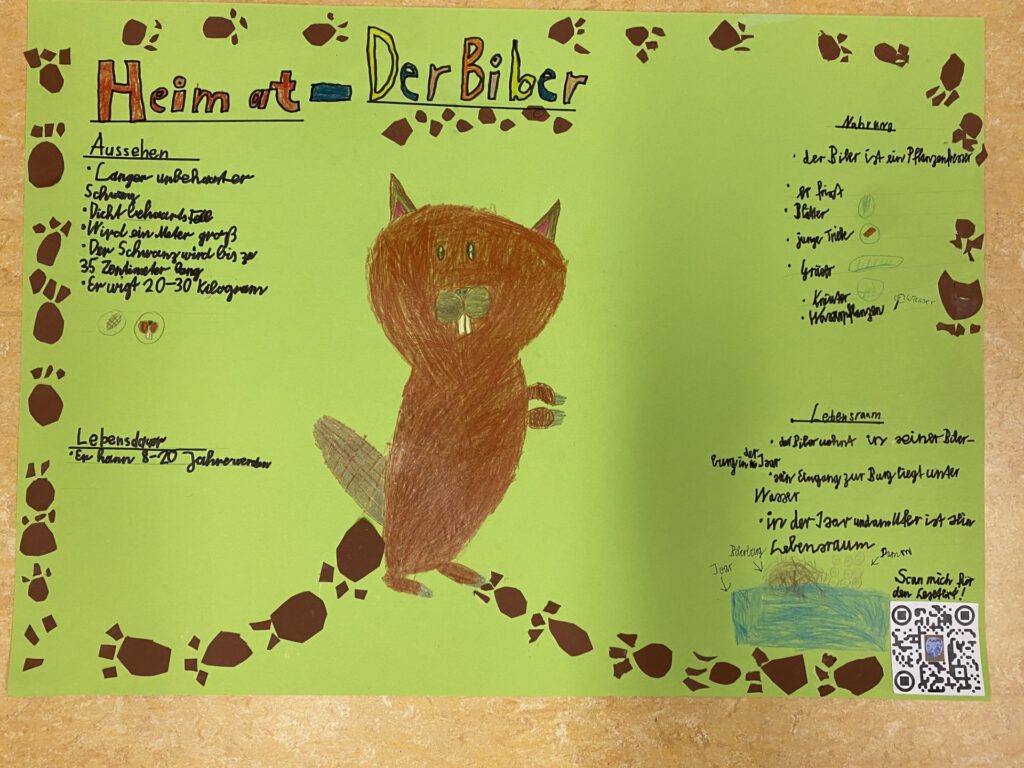 Heimat - Der Biber
Aussehen
• Langer unbehaarter
Schwanz
• Dicht behaartes Fell
• Wird ein Meter groß
• Der Schwanz wird bis zu
35 Zentimeter lang
• Er wigt 20-30 Kilogramm
Lebensdauer
• Er kann 8-20 Jahre werden
Nahrung
• der Biber ist ein Pflanzenfresser
• er frisst
• Blätter
• junge Triebe
• Gräser
• Kräuter
• Wasserpflanzen
Lebensraum
• der Biber wohnt in seiner Biber-
burg in der Isar
• sein Eingang zur Burg liegt unter
Wasser
• in der Isar und am Ufer ist sein
Lebensraum
Isar
Biberburg
Damm
Scan mich für
den Lesetext!